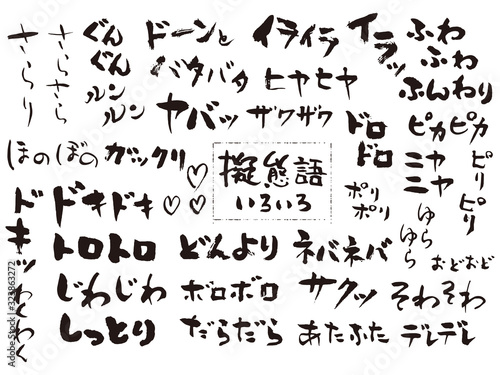 さらり
さらさら
ぐん
ぐん
ルン
ルン
ドーンと
バタバタ
ヤバッ
イライラ
ヒヤヒヤ
ザワザワ
イラッ
ふわ
ふわ
ふんわり
ピカピカ
ドロ
ドロ
ピリ
ピリ
ほのぼの
ガックリ
擬態語
いろいろ
ポリ
ポリ
ゆら
ゆら
おどおど
ドキッ
ドキドキ
わくわく
トロトロ
どんより
ネバネバ
じわじわ
ボロボロ
サクッ
そわそわ
しっとり
だらだら
あたふた
デレデレ